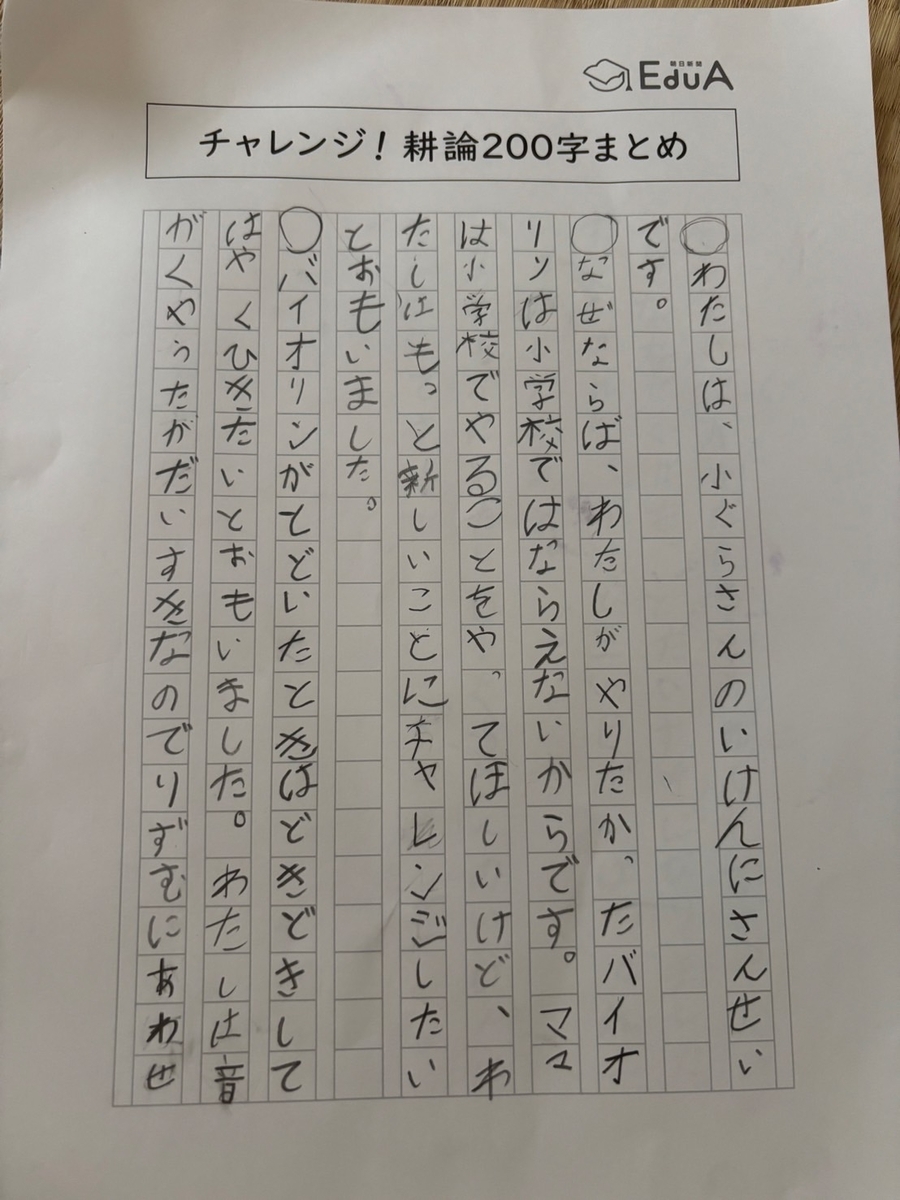 朝日新聞
EduA
チャレンジ！耕論200字まとめ
○わたしは、小ぐらさんのいけんにさんせい
です。
○なぜならば、わたしがやりたかったバイオ
リンは小学校ではならえないからです。ママ
は小学校でやることをやってほしいけど、わ
たしはもっと新しいことにチャレンジしたい
とおもいました。
○バイオリンがとどいたときはどきどきして
はやくひきたいとおもいました。わたしは音
がくやうたがだいすきなのでりずむにあわせ